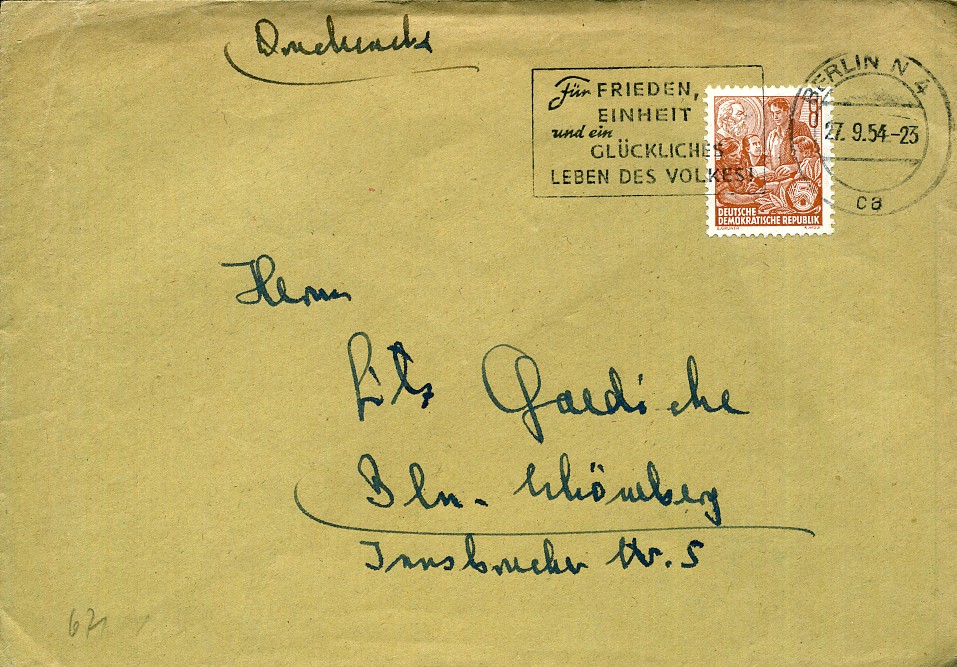 Drucksache
Für FRIEDEN,
EINHEIT
und ein
GLÜCKLICHES
LEBEN DES VOLKES!
BERLIN N 4
27. 9.54.-23
ca
5
DEUTSCHE
DEMOKRATISCHE REPUBLIK
Herrn
Fritz Gaedicke
Bln.- Schöneberg
Innsbrucker Str. 5
671